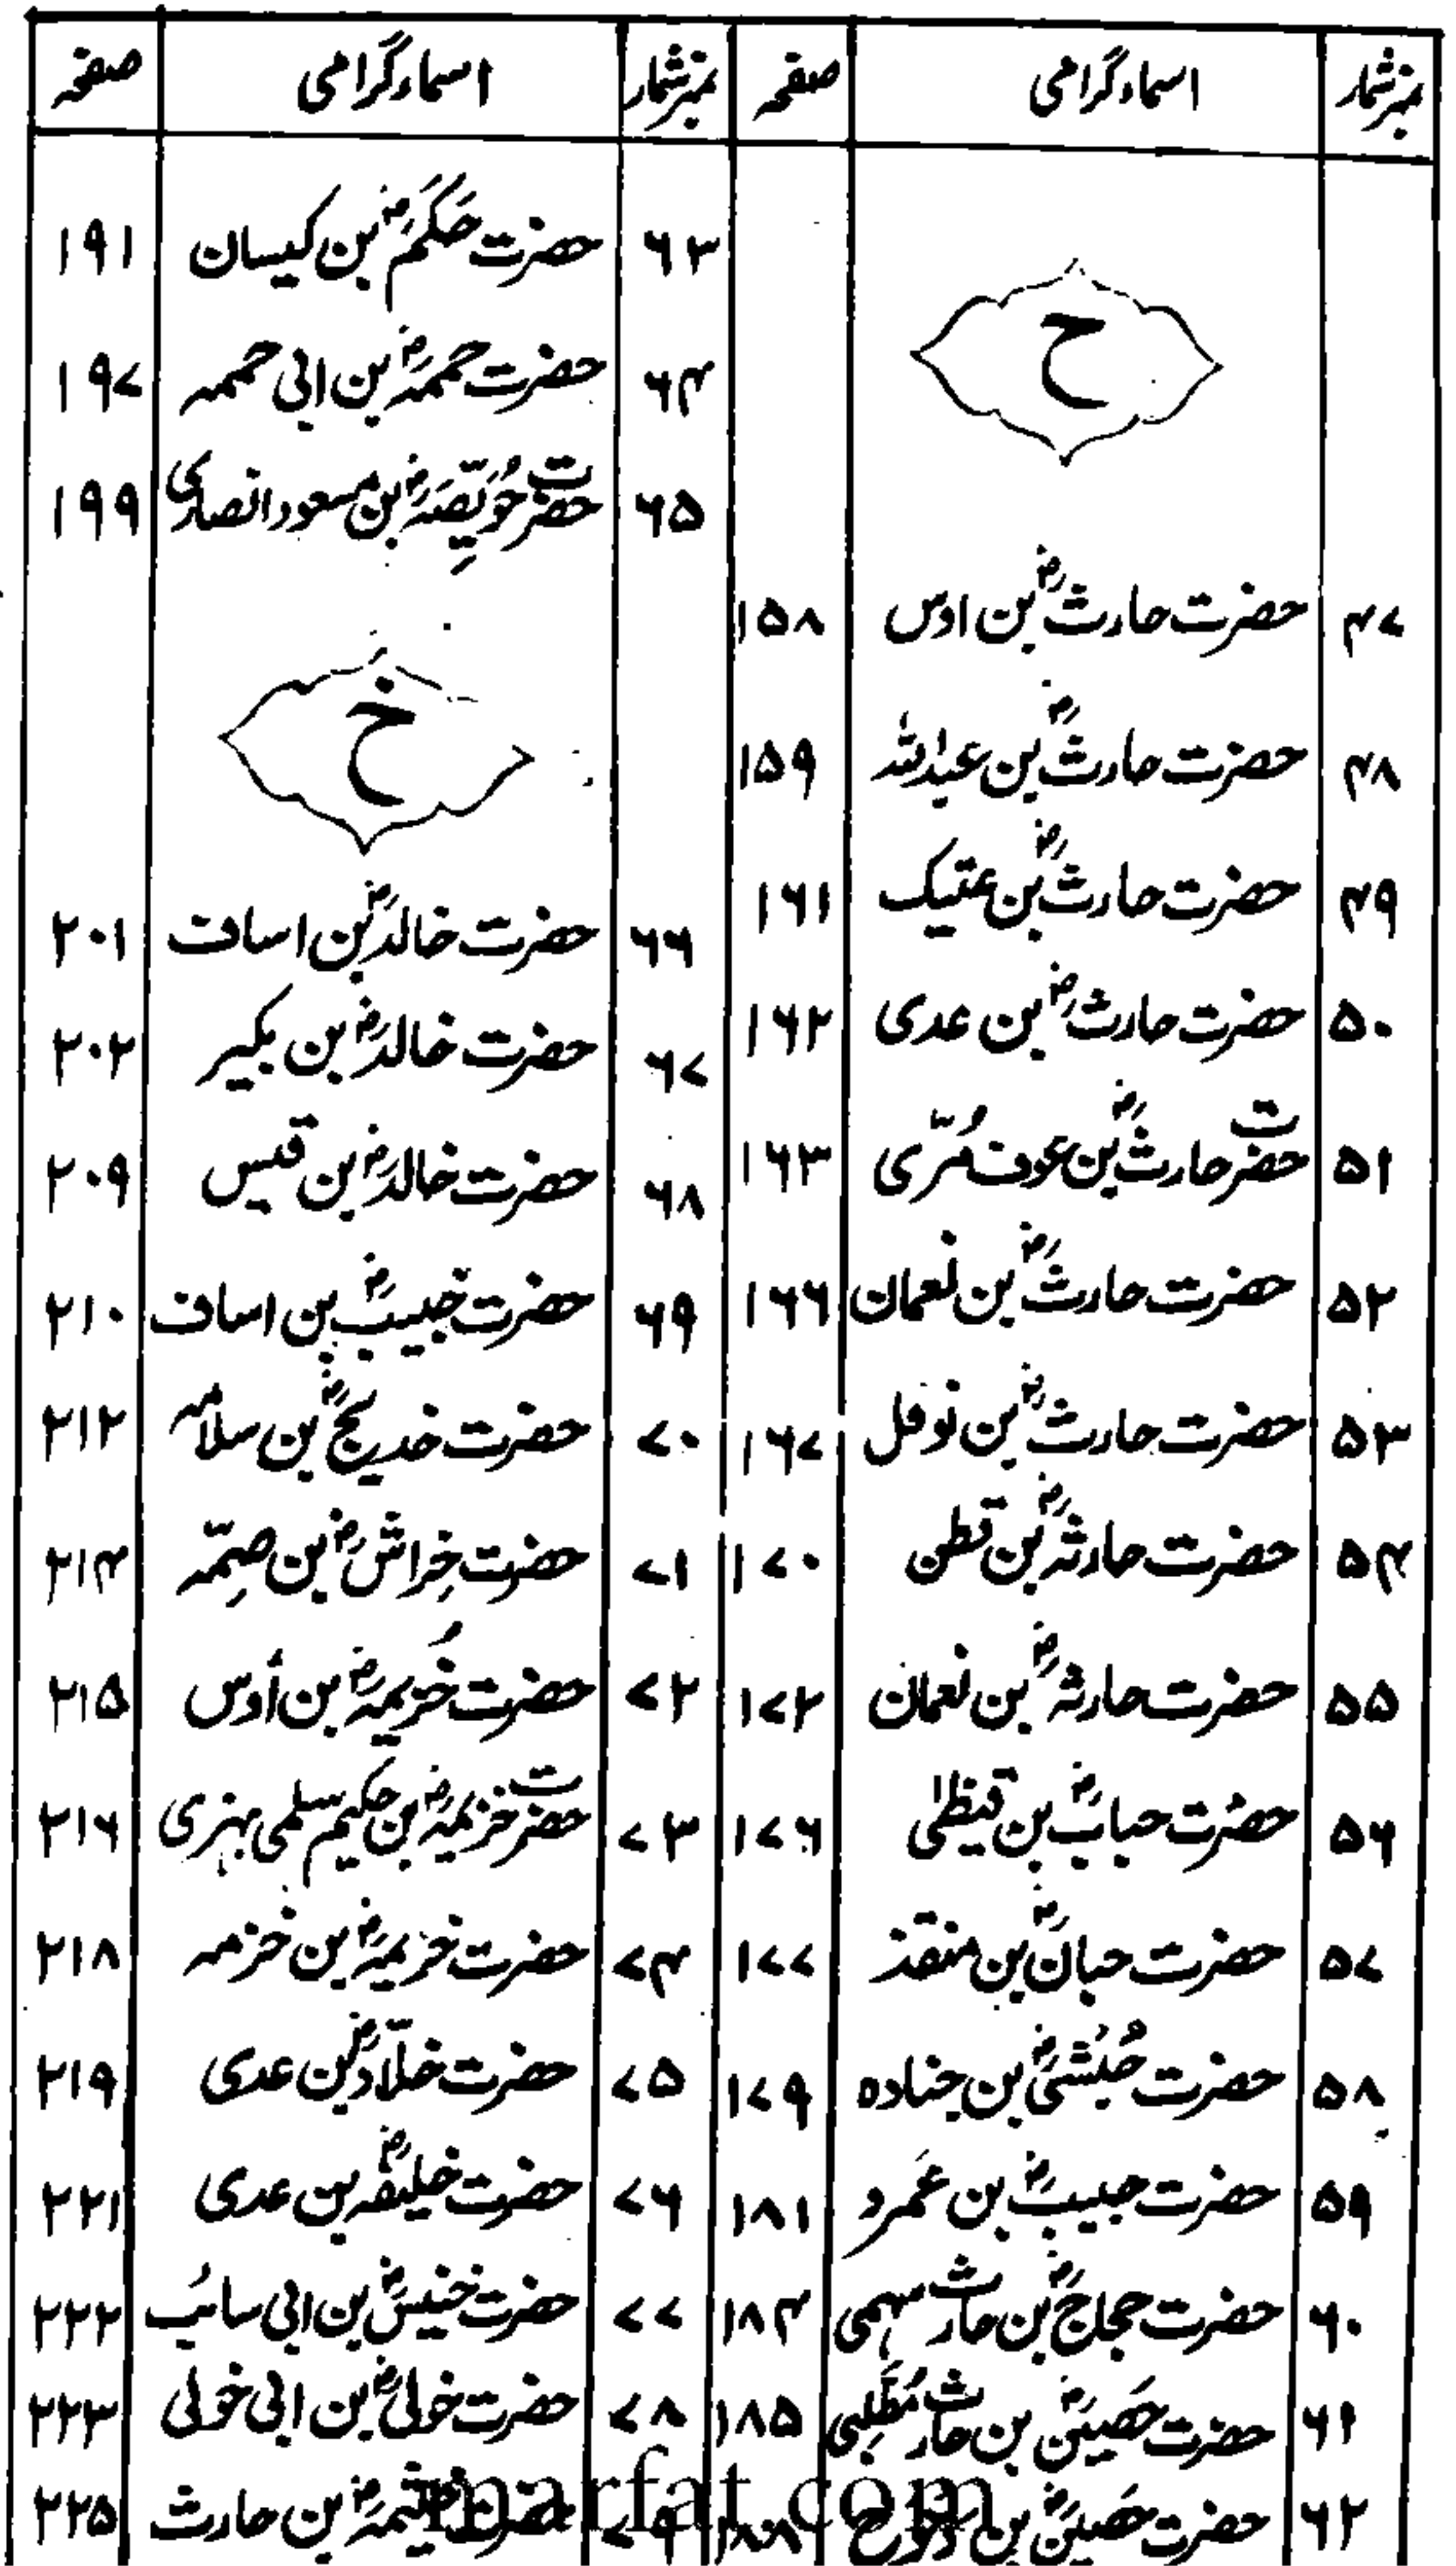 نمبرشمار اسماءگرامی صفحہ
ح
۴۷ حضرت حارثؓ بن اوس ۱۵۸
۴۸ حضرت حارثؓ بن عبداللہ ۱۵۹
۴۹ حضرت حارثؓ بن عتیک ۱۶۱
۵۰ حضرت حارثؓ بن عدی ۱۶۲
۵۱ حضرت حارثؓ بن عوف مُرّی ۱۶۳
۵۲ حضرت حارثؓ بن نعمان ۱۶۶
۵۳ حضرت حارثؓ بن نوفل ۱۶۷
۵۴ حضرت حارثہؓ بن قطن ۱۷۰
۵۵ حضرت حارثہؓ بن نعمان ۱۷۲
۵۶ حضرت حبابؓ بن قیظی ۱۷۶
۵۷ حضرت حبانؓ بن منقذ ۱۷۷
۵۸ حضرت حُبُشیؓ بن جنادہ ۱۷۹
۵۹ حضرت حبیبؓ بن عَمرو ۱۸۱
۶۰ حضرت حجاجؓ بن حارث سہمی ۱۸۴
۶۱ حضرت حَصینؓ بن حارث مُطَّلِبی ۱۸۵
۶۲ حضرت حَصینؓ بن ۱۸۸
نمبرشمار اسماءگرامی صفحہ
۶۳ حضرت حَکَمؓ بن کیسان ۱۹۱
۶۴ حضرت حممہؓ بن ابی حممہ ۱۹۷
۶۵ حضرت حُوَیِّصَہؓ بن مسعود انصاری ۱۹۹
خ
۶۶ حضرت خالدؓ بن اساف ۲۰۱
۶۷ حضرت خالدؓ بن بکیر ۲۰۲
۶۸ حضرت خالدؓ بن قیس ۲۰۹
۶۹ حضرت خبیبؓ بن اساف ۲۱۰
۷۰ حضرت خدیجؓ بن سلامہ ۲۱۲
۷۱ حضرت خِراشؓ بن صِمّہ ۲۱۴
۷۲ حضرت خُزیمہؓ بن اَوس ۲۱۵
۷۳ حضرت خزیمہؓ بن حکیم سلمی بہزی ۲۱۶
۷۴ حضرت خزیمہؓ بن خزمہ ۲۱۸
۷۵ حضرت خلّادؓ بن عدی ۲۱۹
۷۶ حضرت خلیفہؓ بن عدی ۲۲۱
۷۷ حضرت خنیسؓ بن ابی سائب ۲۲۲
۷۸ حضرت خولیؓ بن ابی خولی ۲۲۳
۷۹ حضرت خیثمہؓ بن حارث ۲۲۵
marfat.com